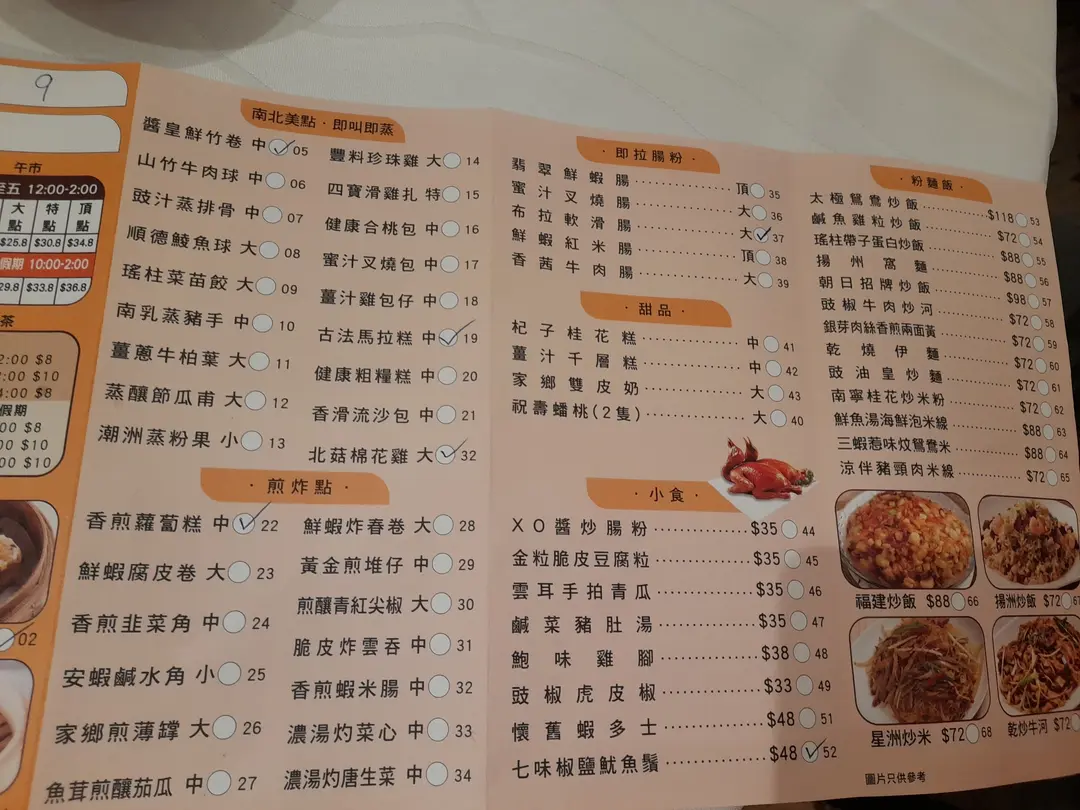 9
午市
至五 12:00-2:00
大點 特點 頂點
$25.8 $30.8 $34.8
假期 10:00-2:00
29.8 $33.8 $36.8
茶
2:00 $8
:00 $10
4:00 $8
假期
00 $8
00 $10
00 $10
02
南北美點·即叫即蒸
醬皇鮮竹卷 中 05
山竹牛肉球 中 06
豉汁蒸排骨 中 07
順德鯪魚球 大 08
瑤柱菜苗餃 大 09
南乳蒸豬手 中 10
薑蔥牛柏葉 大 11
蒸釀節瓜甫 大 12
潮洲蒸粉果 小 13
豐料珍珠雞 大 14
四寶滑雞扎 特 15
健康合桃包 中 16
蜜汁叉燒包 中 17
薑汁雞包仔 中 18
古法馬拉糕 中 19
健康粗糧糕 中 20
香滑流沙包 中 21
北菇棉花雞 大 32
·煎炸點·
香煎蘿蔔糕 中 22
鮮蝦腐皮卷 大 23
香煎韭菜角 中 24
安蝦鹹水角 小 25
家鄉煎薄罉 大 26
魚茸煎釀茄瓜 中 27
鮮蝦炸春卷 大 28
黃金煎堆仔 中 29
煎釀青紅尖椒 大 30
脆皮炸雲吞 中 31
香煎蝦米腸 中 32
濃湯灼菜心 中 33
濃湯灼唐生菜 中 34
·即拉腸粉·
翡翠鮮蝦腸 頂 35
蜜汁叉燒腸 大 36
布拉軟滑腸 大 37
鮮蝦紅米腸 頂 38
香茜牛肉腸 大 39
·甜品·
杞子桂花糕 中 41
薑汁千層糕 中 42
家鄉雙皮奶 大 43
祝壽蟠桃(2隻) 大 40
·小食·
XO醬炒腸粉 $35 44
金粒脆皮豆腐粒 $35 45
雲耳手拍青瓜 $35 46
鹹菜豬肚湯 $35 47
鮑味雞腳 $38 48
豉椒虎皮椒 $33 49
懷舊蝦多士 $48 51
七味椒鹽魷魚鬚 $48 52
·粉麵飯·
太極鴛鴦炒飯 $118 53
鹹魚雞粒炒飯 $72 54
瑤柱帶子蛋白炒飯 $88 55
揚州窩麵 $88 56
朝日招牌炒飯 $98 57
豉椒牛肉炒河 $72 58
銀芽肉絲香煎兩面黃 $72 59
乾燒伊麵 $72 60
豉油皇炒麵 $72 61
南寧桂花炒米粉 $72 62
鮮魚湯海鮮泡米線 $88 63
三蝦惹味炆鴛鴦米 $88 64
涼伴豬頸肉米線 $72 65
福建炒飯 $88 66
揚洲炒飯 $72 67
星洲炒米 $72 68
乾炒牛河 $72
圖片只供參考